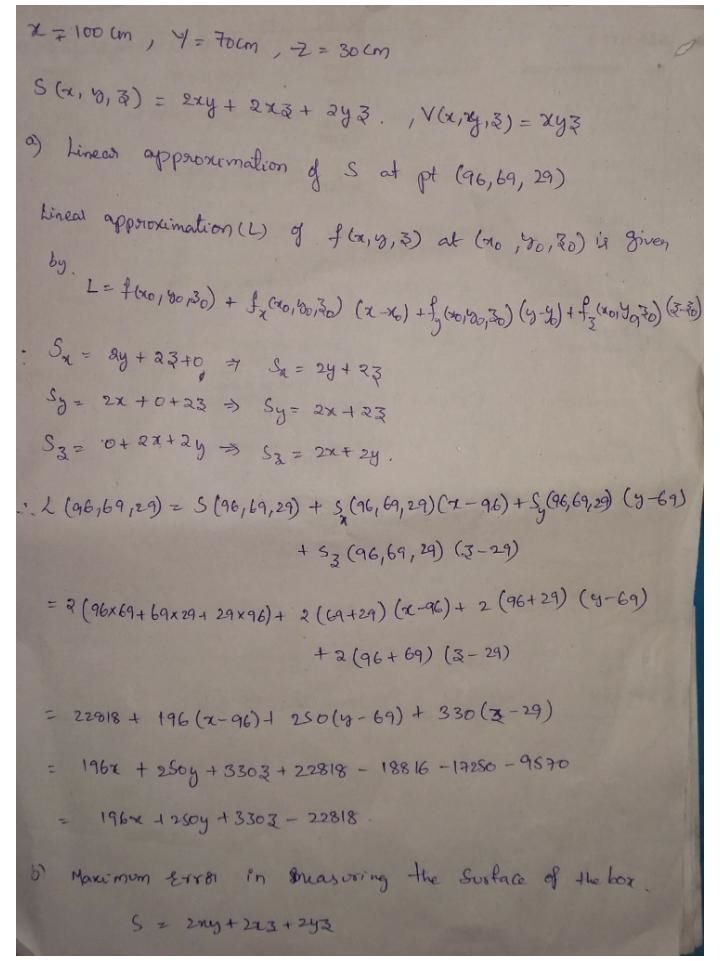 x = 100 cm , y = 70cm , z = 30 cm
S(x, y, z) = 2xy + 2xz + 2yz . , V(x, y, z) = xyz
a) Linear approximation of S at pt (96, 69, 29)
Linear approximation (L) of f(x, y, z) at (x₀, y₀, z₀) is given
by.
L = f(x₀, y₀, z₀) + fₓ(x₀, y₀, z₀) (x-x₀) + f_y(x₀, y₀, z₀) (y-y₀) + f_z(x₀, y₀, z₀) (z-z₀)
: Sₓ = 2y + 2z + 0 ⇒ Sₓ = 2y + 2z
S_y = 2x + 0 + 2z ⇒ S_y = 2x + 2z
S_z = 0 + 2x + 2y ⇒ S_z = 2x + 2y .
∴ L (96, 69, 29) = S(96, 69, 29) + Sₓ(96, 69, 29)(x-96) + S_y(96, 69, 29) (y-69)
+ S_z (96, 69, 29) (z-29)
= 2(96×69 + 69×29 + 29×96) + 2(69+29) (x-96) + 2(96+29) (y-69)
+ 2(96+69) (z-29)
= 22818 + 196(x-96) + 250(y-69) + 330(z-29)
= 196x + 250y + 330z + 22818 - 18816 - 17250 - 9570
= 196x + 250y + 330z - 22818 .
b) Maximum Error in measuring the Surface of the box.
S = 2xy + 2xz + 2yz